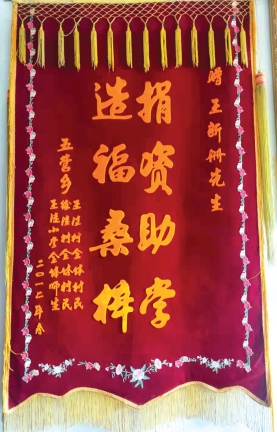 赠王新册先生
捐资助学
造福桑梓
五营乡
王洼村全体村民
徐洼村全体村民
王洼小学全体师生
二〇一七年春